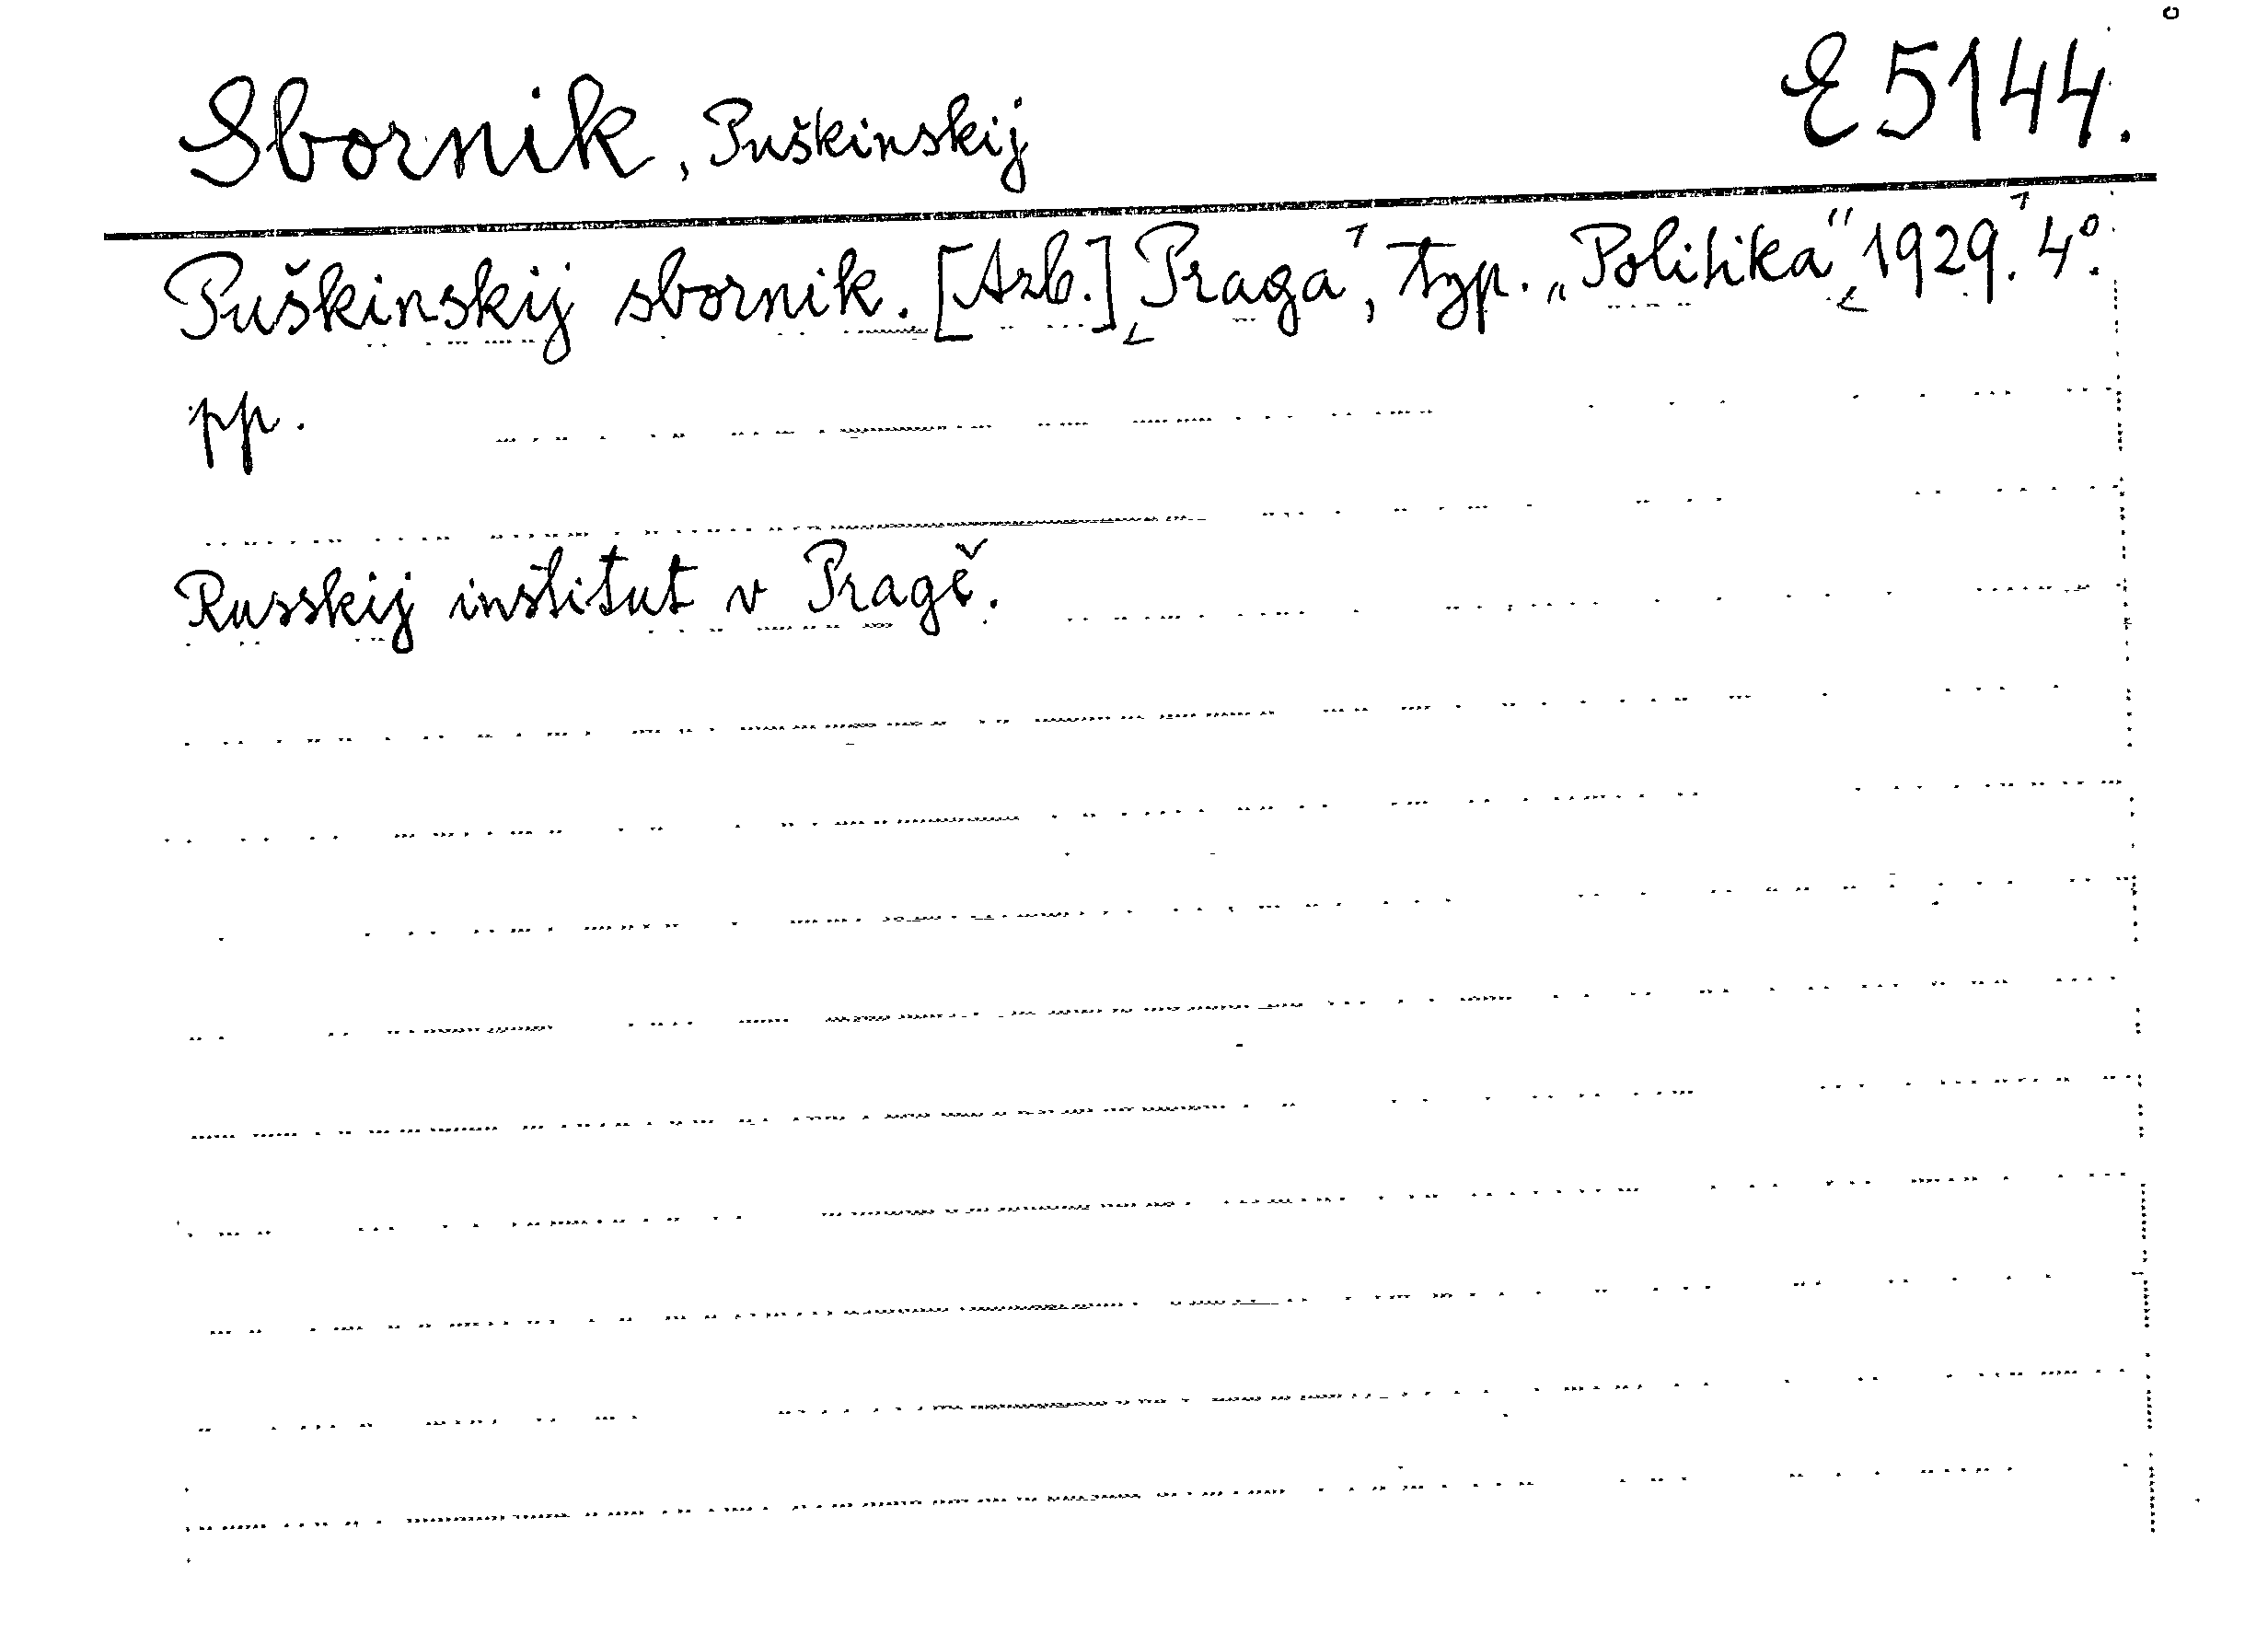 Sbornik, Puškinskij E 5144.
Puškinskij sbornik. [Azb.] ⌞Praga⌝, typ. „Politika“ ⌞1929.⌝ 4°.
pp.
Russkij institut v Pragě.